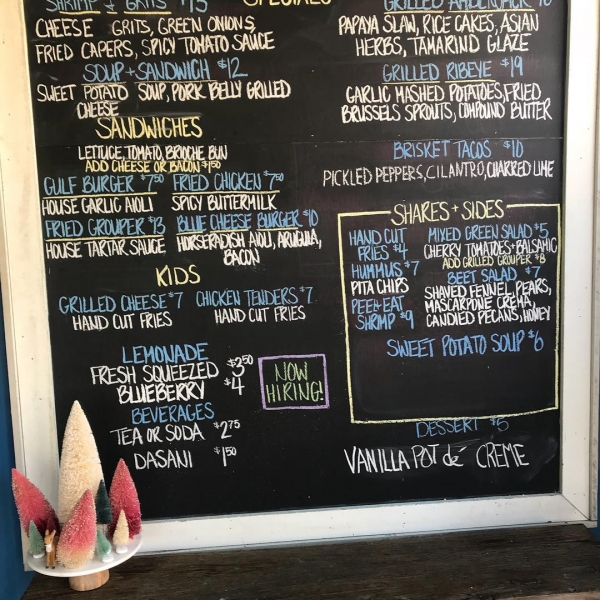 SPECIALS
SHRIMP & GRITS $15
CHEESE GRITS, GREEN ONIONS,
FRIED CAPERS, SPICY TOMATO SAUCE
SOUP + SANDWICH $12
SWEET POTATO SOUP, PORK BELLY GRILLED
CHEESE
SANDWICHES
LETTUCE, TOMATO, BRIOCHE BUN
ADD CHEESE OR BACON $1.50
GULF BURGER $7.50 FRIED CHICKEN $7.50
HOUSE GARLIC AIOLI SPICY BUTTERMILK
FRIED GROUPER $13 BLUE CHEESE BURGER $10
HOUSE TARTAR SAUCE HORSERADISH AIOLI, ARUGULA,
BACON
KIDS
GRILLED CHEESE $7 CHICKEN TENDERS $7
HAND CUT FRIES HAND CUT FRIES
LEMONADE
FRESH SQUEEZED $3.50
BLUEBERRY $4
BEVERAGES
TEA OR SODA $2.75
DASANI $1.50
NOW
HIRING!
GRILLED AMBERJACK
PAPAYA SLAW, RICE CAKES, ASIAN
HERBS, TAMARIND GLAZE
GRILLED RIBEYE $19
GARLIC MASHED POTATOES, FRIED
BRUSSELS SPROUTS, COMPOUND BUTTER
BRISKET TACOS $10
PICKLED PEPPERS, CILANTRO, CHARRED LIME
SHARES + SIDES
HAND CUT
FRIES $4
HUMMUS $7
PITA CHIPS
PEEL + EAT
SHRIMP $9
MIXED GREEN SALAD $5
CHERRY TOMATOES + BALSAMIC
ADD GRILLED GROUPER $8
BEET SALAD $7
SHAVED FENNEL, PEARS,
MASCARPONE CREMA,
CANDIED PECANS, HONEY
SWEET POTATO SOUP $6
DESSERT $5
VANILLA POT dé CREME